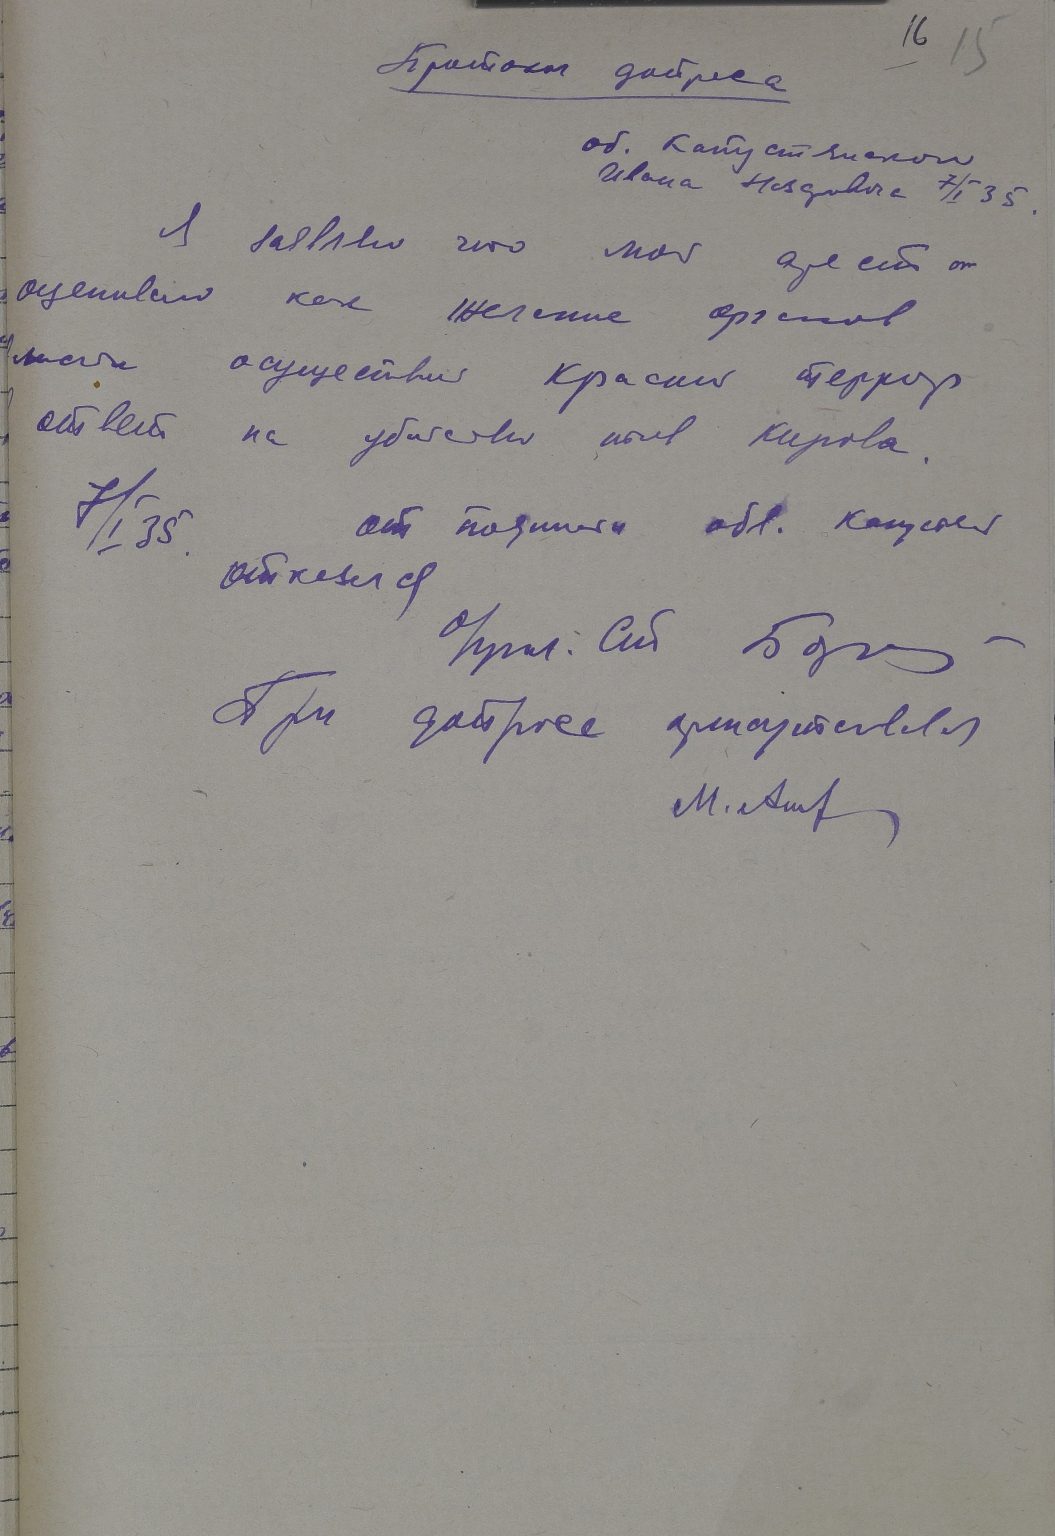 16 15
Протокол допроса
об. Капустянского
Ивана 7/I 35.
Я заявляю что мой арест
оцениваю как желание органов
власти осуществить красный террор
ответ на убийство Кирова.
7/I 35. от подписи обв. Капустян
отказался
Опрол. СПО
При допросе присутствовал
М.